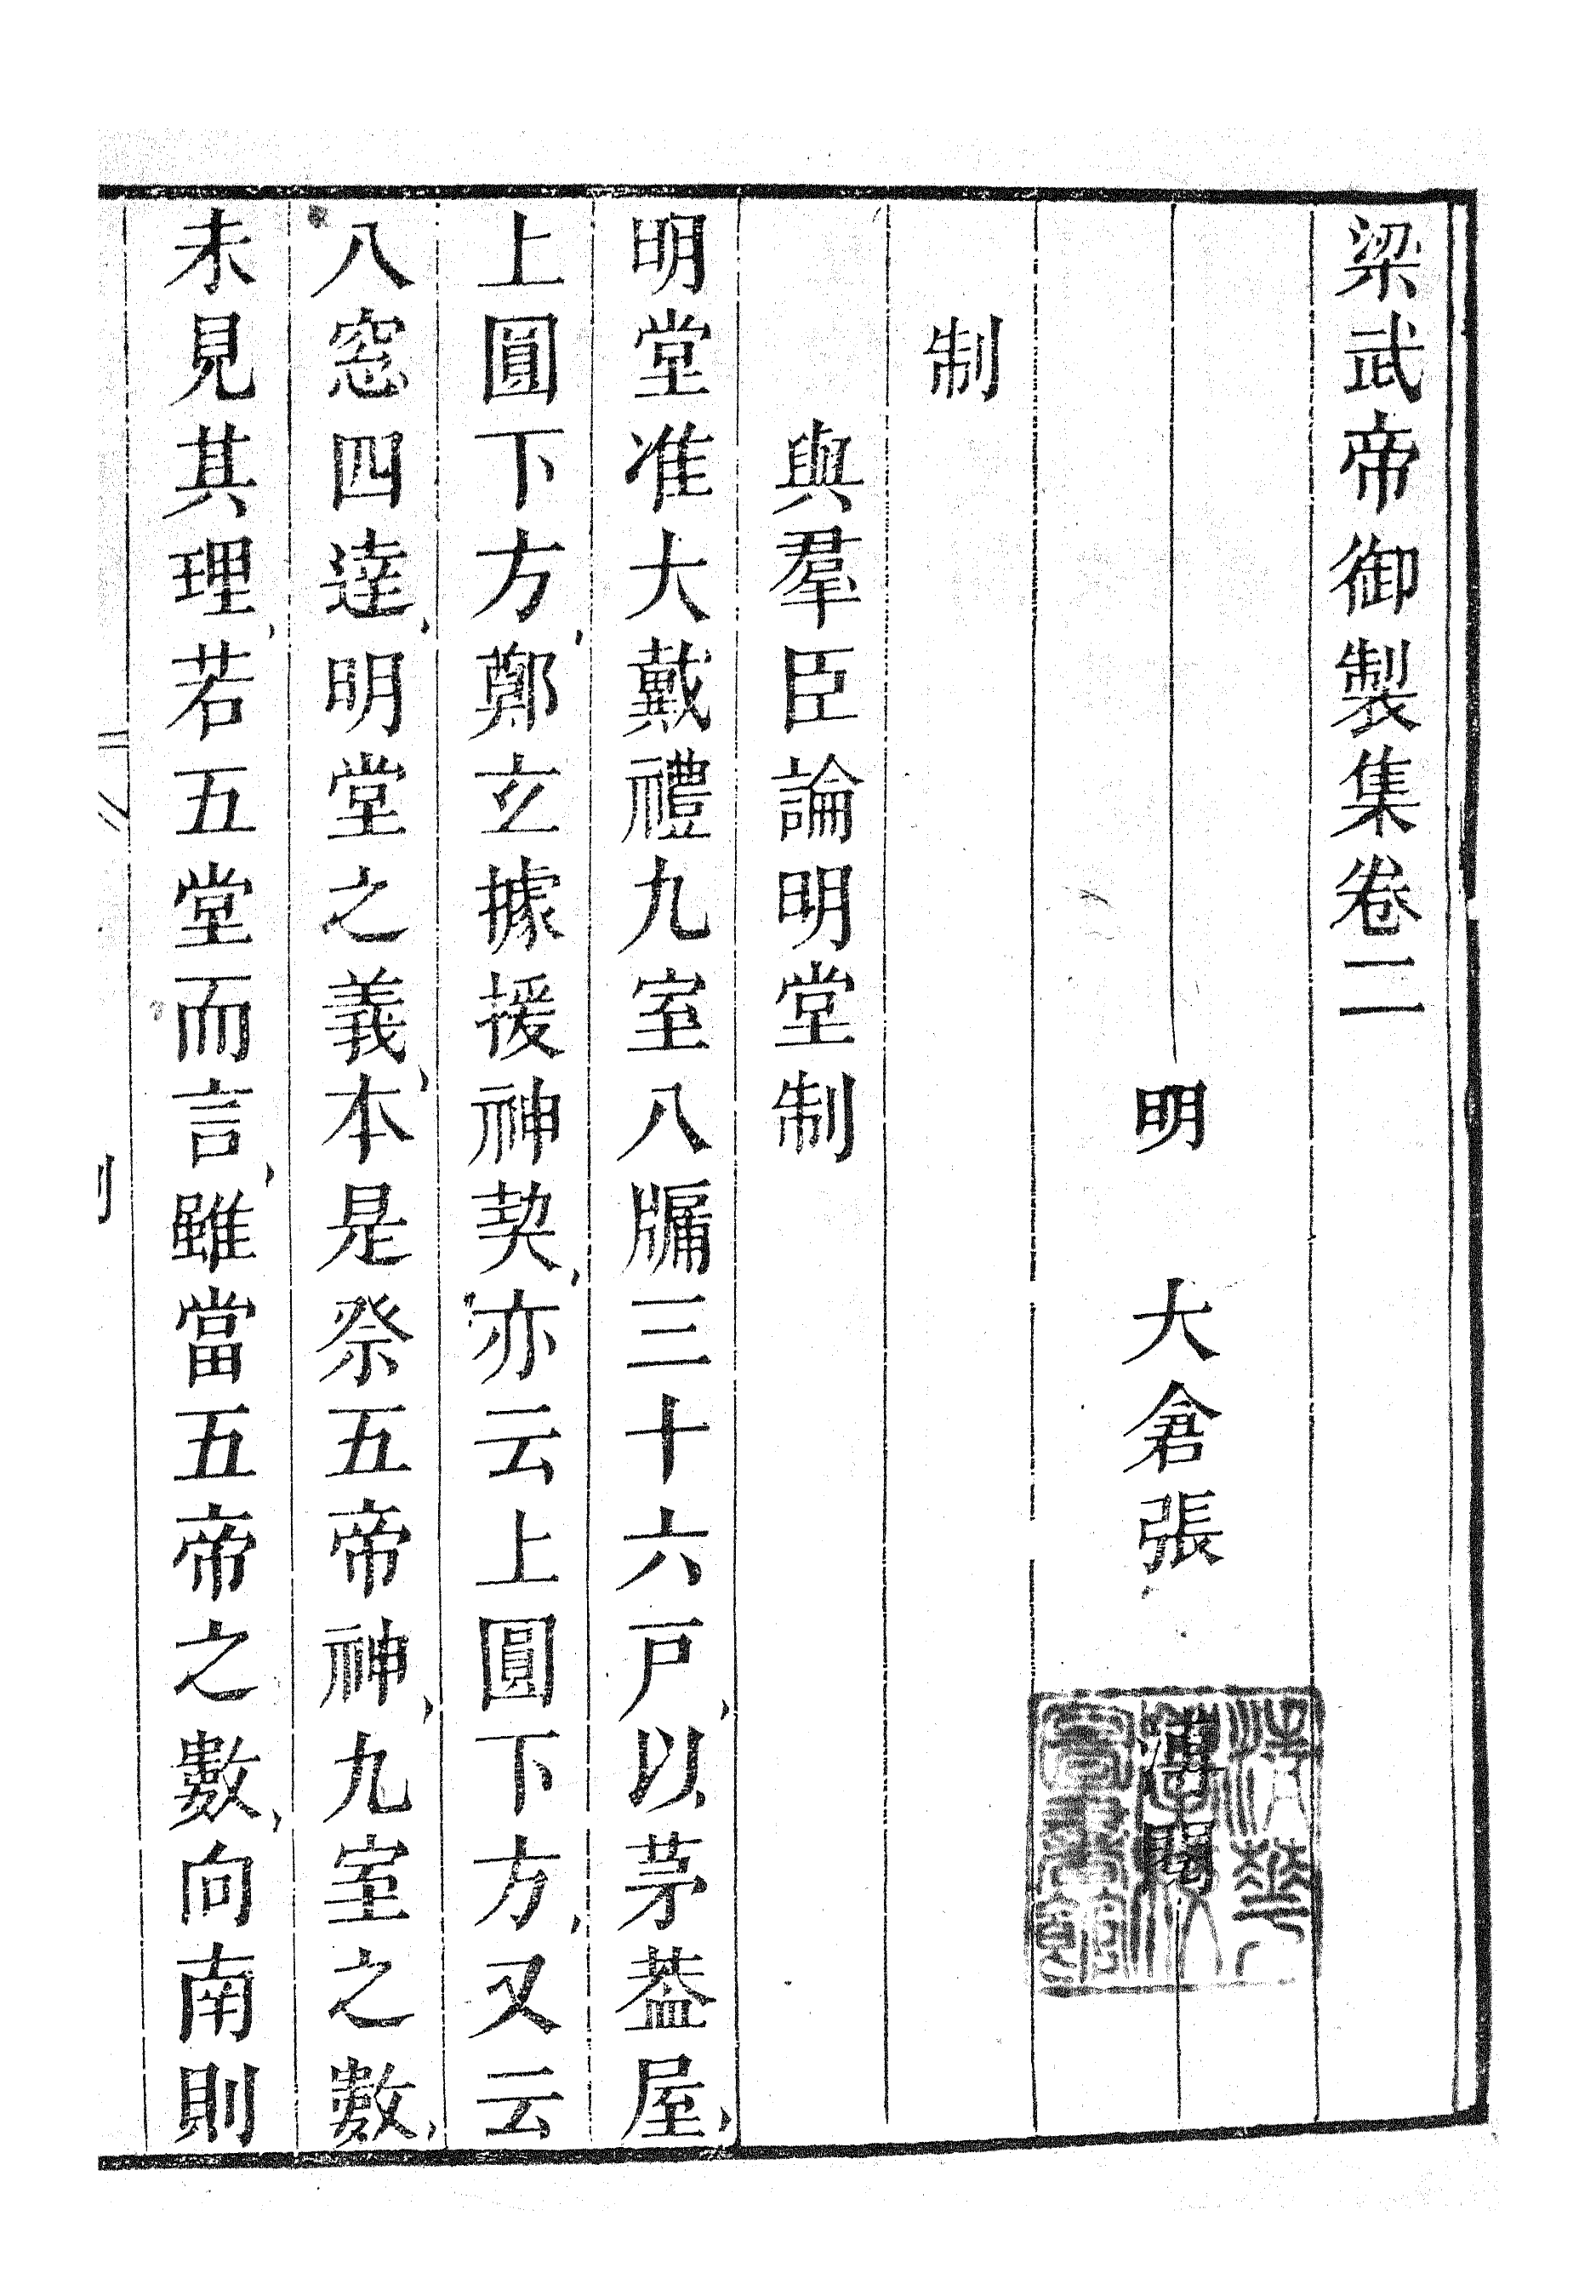 梁武帝御製集卷二
明　大倉張　溥閱
制
與羣臣論明堂制
明堂准大戴禮九室八牖三十六戸、以茅葢屋、
上圓下方、鄭玄據援神契、亦云上圓下方、又云
八窓四達、明堂之義、本是祭五帝神、九室之數、
未見其理、若五堂而言、雖當五帝之數、向南則